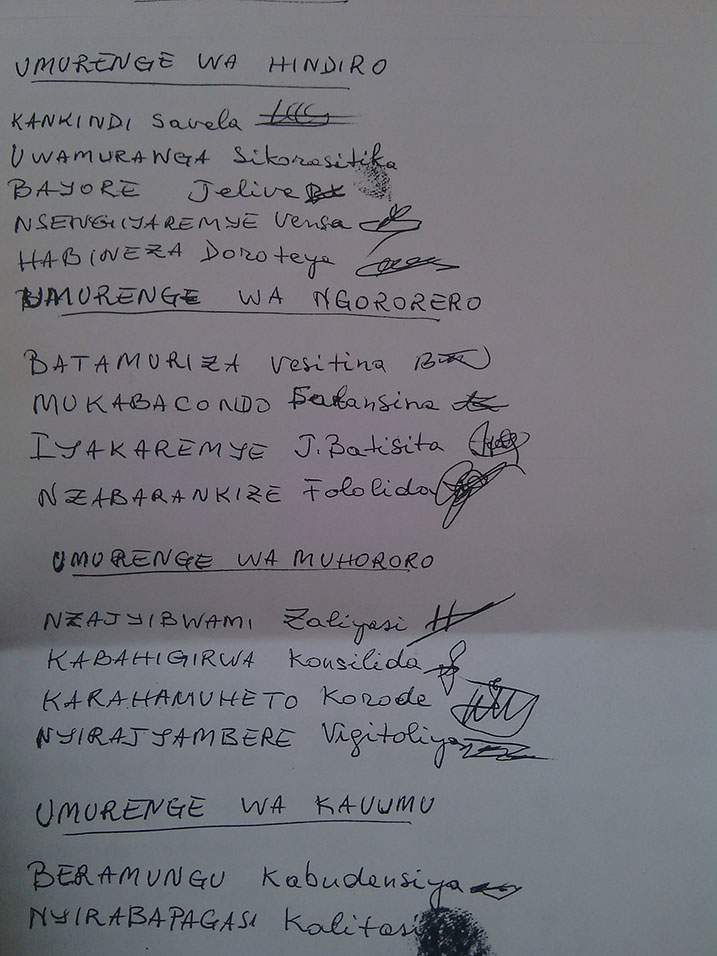 UMURENGE WA HINDIRO
KANKINDI Savela
UWAMURANGA Sikorasitika
BAYORE Jelive
NSENGIYAREMYE Vensa
HABINEZA Doroteya
UMURENGE WA NGORORERO
BATAMURIZA Vesitina
MUKABACONDO
IYAKAREMYE J.Batisita
NZABARANKIZE Fololida
UMURENGE WA MUHORORO
NZAJYIBWAMI Zaliyasi
KABAHIGIRWA Konsilida
KARAHAMUHETO Korode
NYIRAJYAMBERE Vigitoliya
UMURENGE WA KAVUMU
BERAMUNGU Kabudensiya
NYIRABAPAGASI Kalitasi